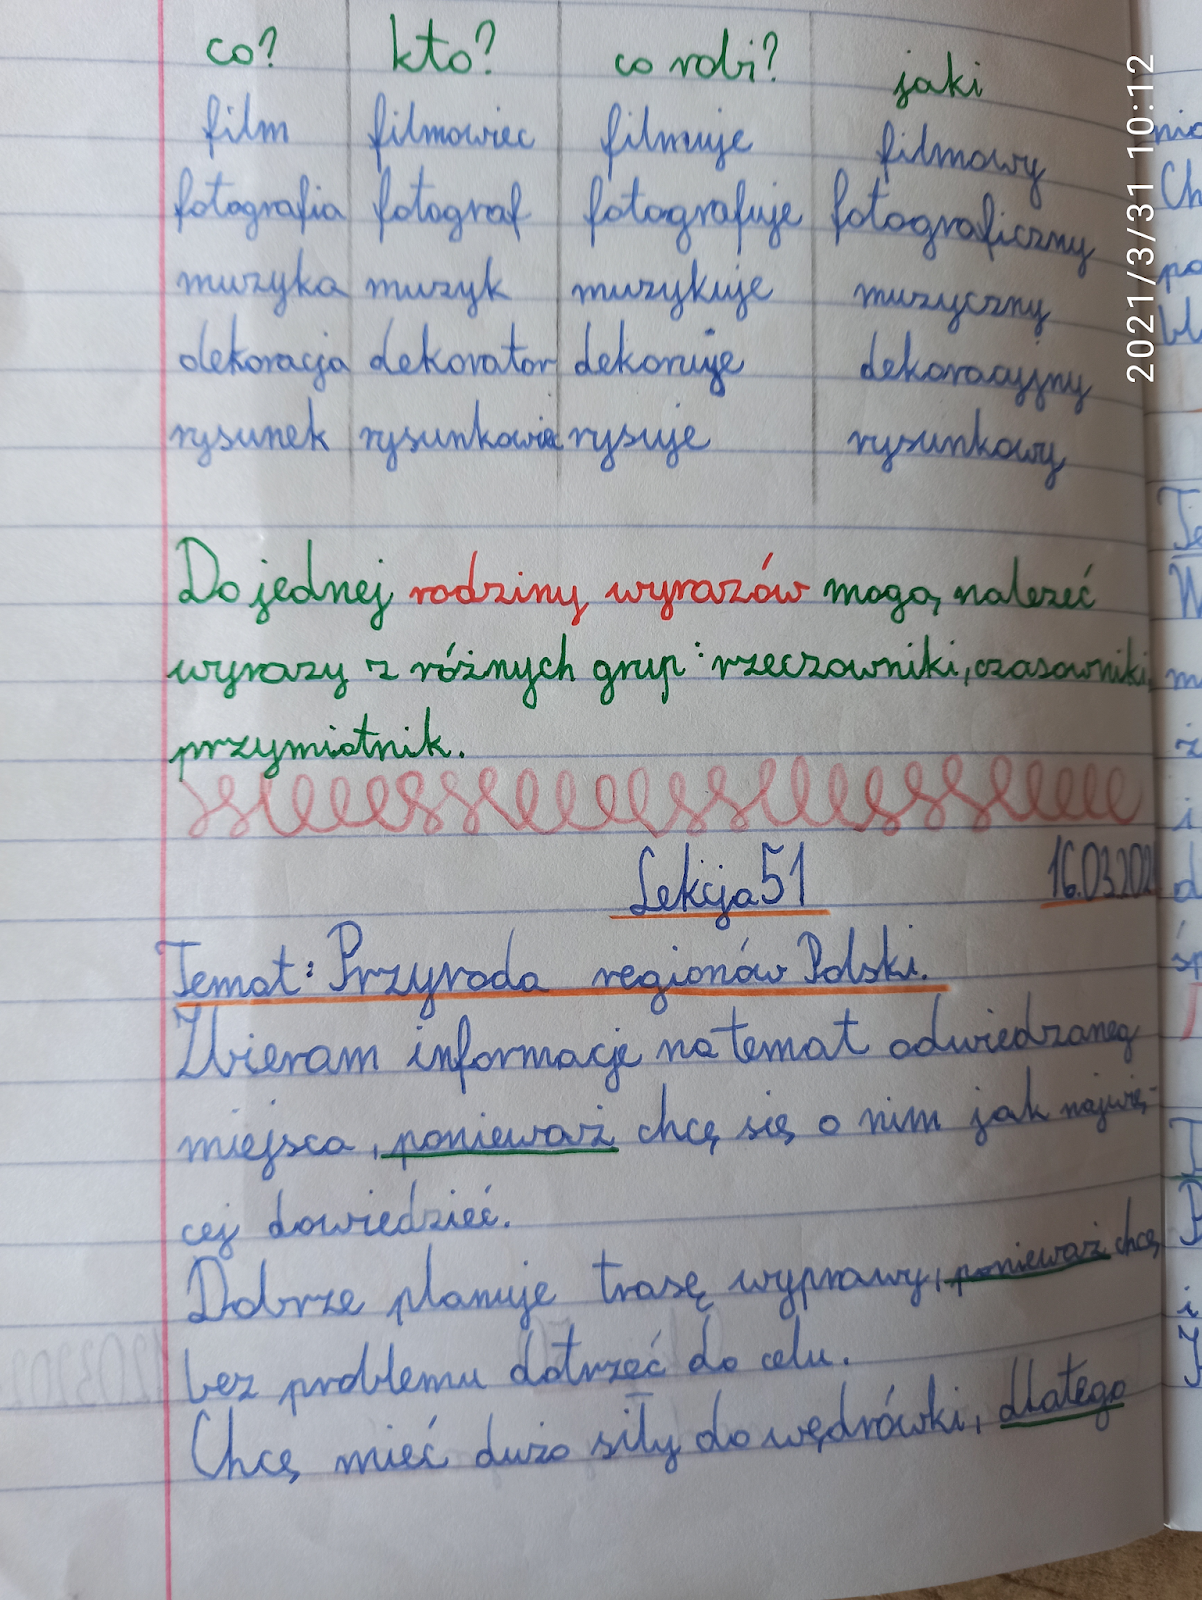 co? kto? co robi? jaki
film filmowiec filmuje filmowy
fotografia fotograf fotografuje fotograficzny
muzyka muzyk muzykuje muzyczny
dekoracja dekorator dekoruje dekoracyjny
rysunek rysunkowiec rysuje rysunkowy
Do jednej rodziny wyrazów mogą należeć
wyrazy z różnych grup: rzeczowniki, czasowniki,
przymiotnik.
Lekcja 51 16.03.202
Temat: Przyroda regionów Polski.
Zbieram informacje na temat odwiedzaneg
miejsca, ponieważ chcę się o nim jak najwię-
cej dowiedzieć.
Dobrze planuje trasę wyprawy, ponieważ chcę
bez problemu dotrzeć do celu.
Chcę mieć dużo siły do wędrówki, dlatego
2021/3/31 10:12